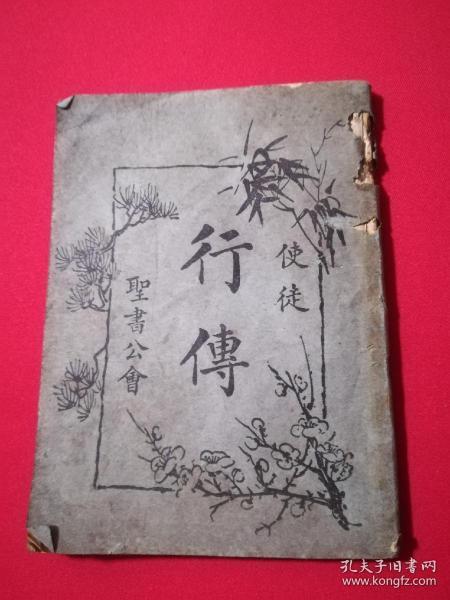 使徒
行傳
聖書公會
孔夫子旧书网
www.kongfz.com